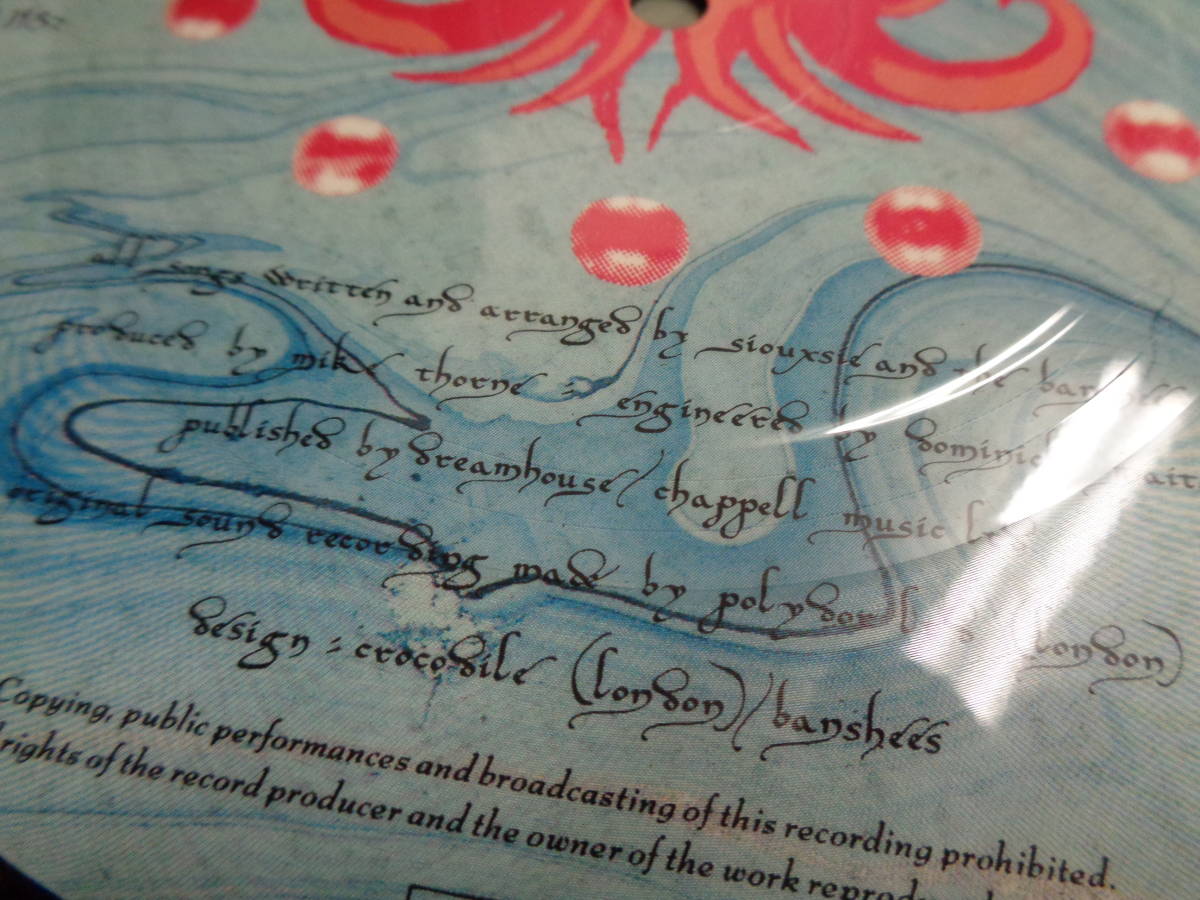 all songs written and arranged by siouxsie and the banshees
produced by mike thorne engineered by dominic
published by dreamhouse / chappell music
original sound recording made by polydor (london)
design : crocodile (london) / banshees
Copying, public performances and broadcasting of this recording prohibited.
rights of the record producer and the owner of the work